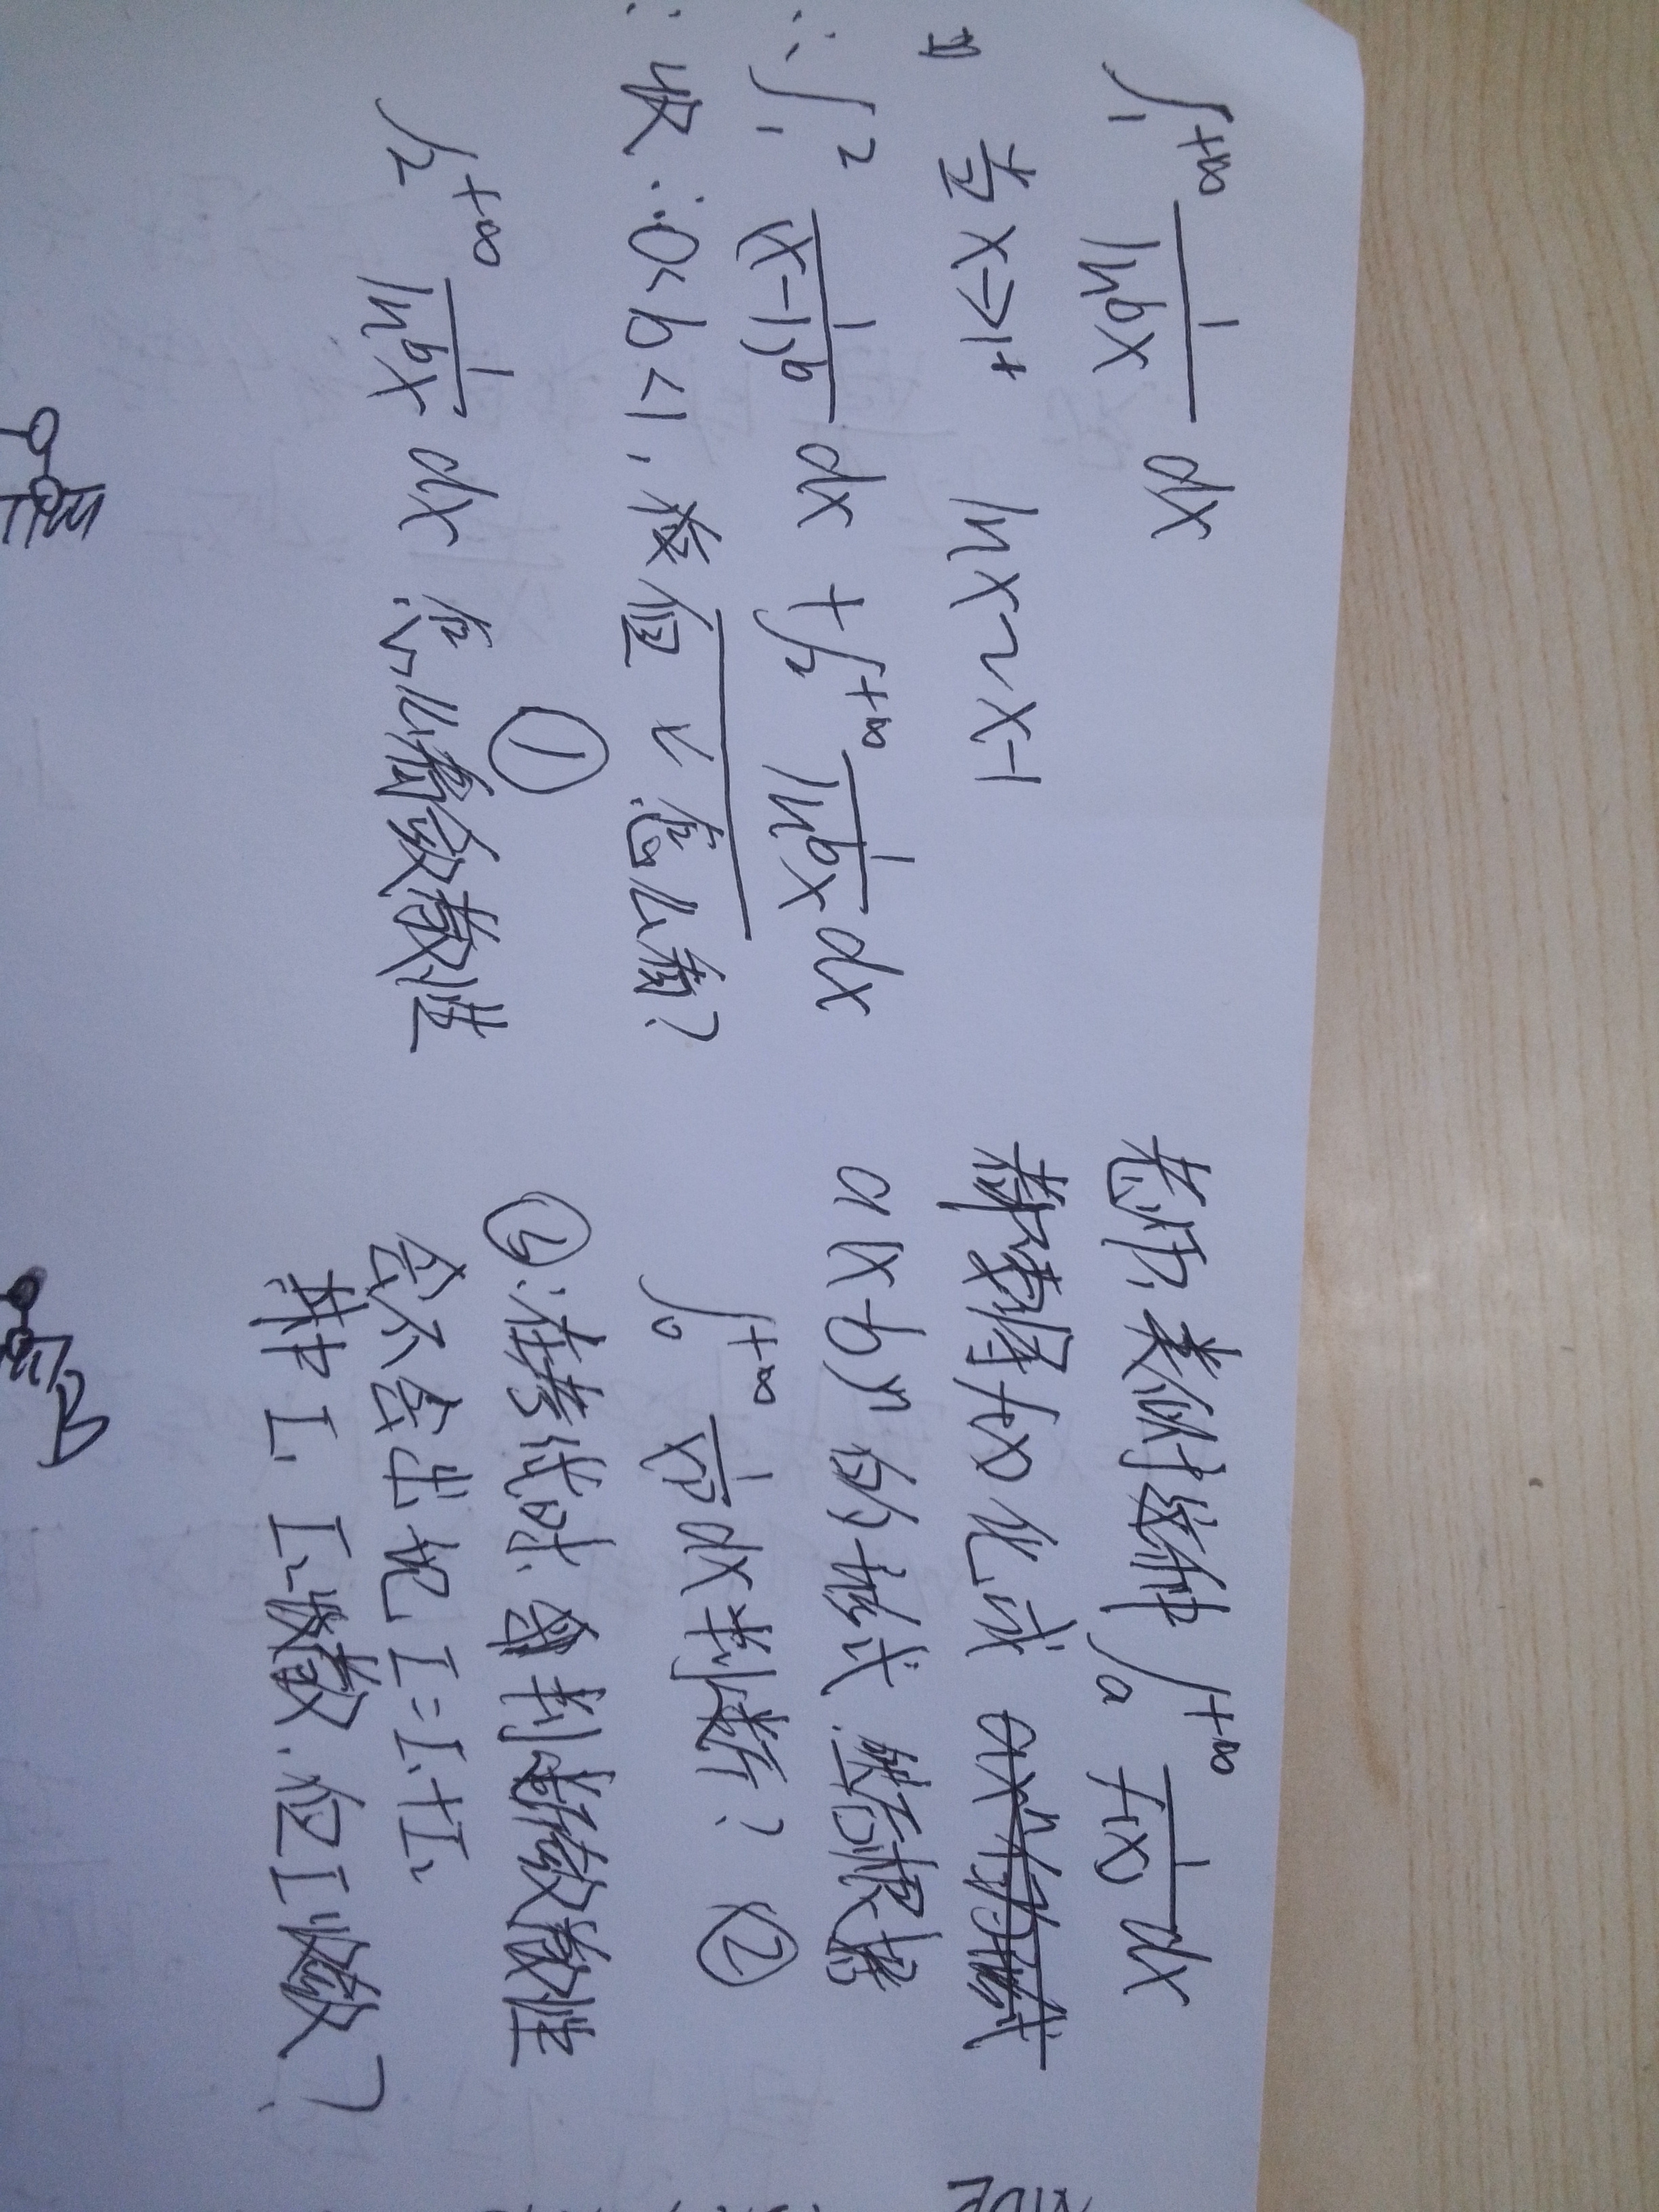 ∫₁^{+∞} 1/(lnᵇx) dx
当 x→1⁺ lnx ~ x-1
∴ ∫₁² 1/(x-1)ᵇ dx + ∫₂^{+∞} 1/(lnᵇx) dx
收 ∴ 0<b<1, 怎么看?
∫₂^{+∞} 1/(lnᵇx) dx 怎么看敛散性
①
老师, 类似于这种 ∫ₐ^{+∞} 1/f(x) dx
都要将 f(x) 化成
a(x+b)ⁿ 的格式. 然后根据
∫₀^{+∞} 1/xᵖ dx 判断? ②
③. 在考试时, 判断敛散性
会不会出现 I=I₁+I₂
其中 I₁ I₂ 发散. 但 I 收敛?